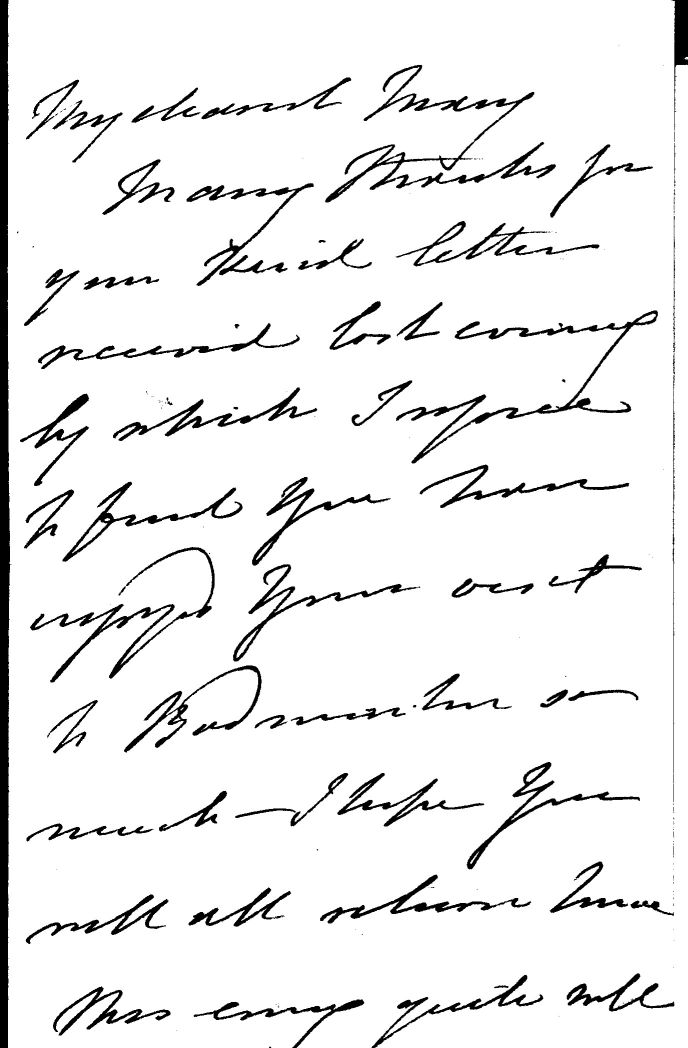 My dearest Mary
Many Thanks for
your kind letter
received last evening
by which I rejoice
to find You have
enjoyed Your visit
to Badminton so
much - I hope You
will all return home
this evening quite well